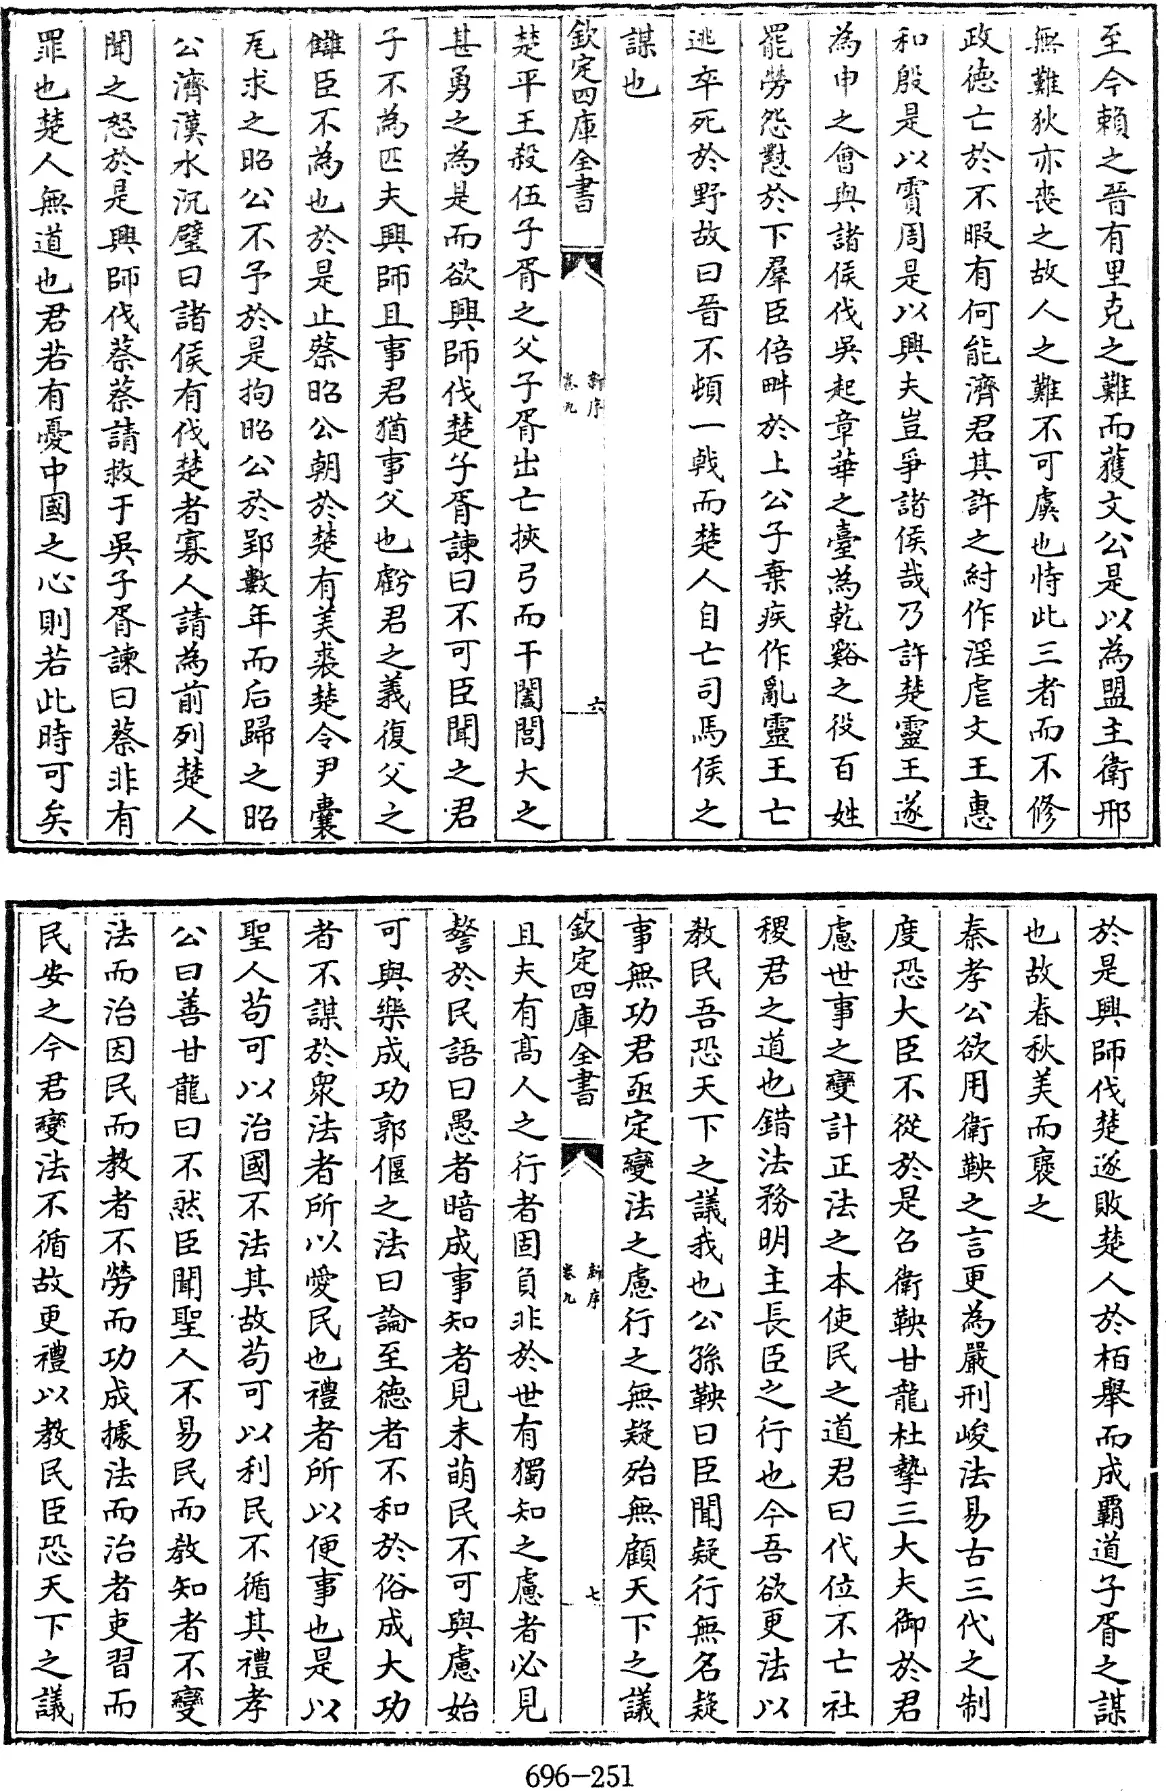 至今賴之晉有里克之難而獲文公是以為盟主衛邢
無難狄亦喪之故人之難不可虞也恃此三者而不修
政德亡於不暇有何能濟君其許之紂作淫虐文王惠
和殷是以霣周是以興夫豈爭諸侯哉乃許楚靈王遂
為申之會與諸侯伐吳起章華之臺為乾谿之役百姓
罷勞怨懟於下羣臣倍畔於上公子棄疾作亂靈王亡
逃卒死於野故曰晉不頓一戟而楚人自亡司馬侯之
謀也
欽定四庫全書
新序
卷九
六
楚平王殺伍子胥之父子胥出亡挾弓而干闔閭大之
甚勇之為是而欲興師伐楚子胥諫曰不可臣聞之君
子不為匹夫興師且事君猶事父也虧君之義復父之
讎臣不為也於是止蔡昭公朝於楚有美裘楚令尹囊
瓦求之昭公不予於是拘昭公於郢數年而后歸之昭
公濟漢水沉璧曰諸侯有伐楚者寡人請為前列楚人
聞之怒於是興師伐蔡蔡請救于吳子胥諫曰蔡非有
罪也楚人無道也君若有憂中國之心則若此時可矣
於是興師伐楚遂敗楚人於栢舉而成霸道子胥之謀
也故春秋美而襃之
秦孝公欲用衛鞅之言更為嚴刑峻法易古三代之制
度恐大臣不從於是召衛鞅甘龍杜摯三大夫御於君
慮世事之變計正法之本使民之道君曰代位不亡社
稷君之道也錯法務明主長臣之行也今吾欲更法以
教民吾恐天下之議我也公孫鞅曰臣聞疑行無名疑
事無功君亟定變法之慮行之無疑殆無顧天下之議
欽定四庫全書
新序
卷九
七
且夫有高人之行者固負非於世有獨知之慮者必見
謷於民語曰愚者暗成事知者見未萌民不可與慮始
可與樂成功郭偃之法曰論至德者不和於俗成大功
者不謀於衆法者所以愛民也禮者所以便事也是以
聖人苟可以治國不法其故苟可以利民不循其禮孝
公曰善甘龍曰不然臣聞聖人不易民而教知者不變
法而治因民而教者不勞而功成據法而治者吏習而
民安之今君變法不循故更禮以教民臣恐天下之議
696-251